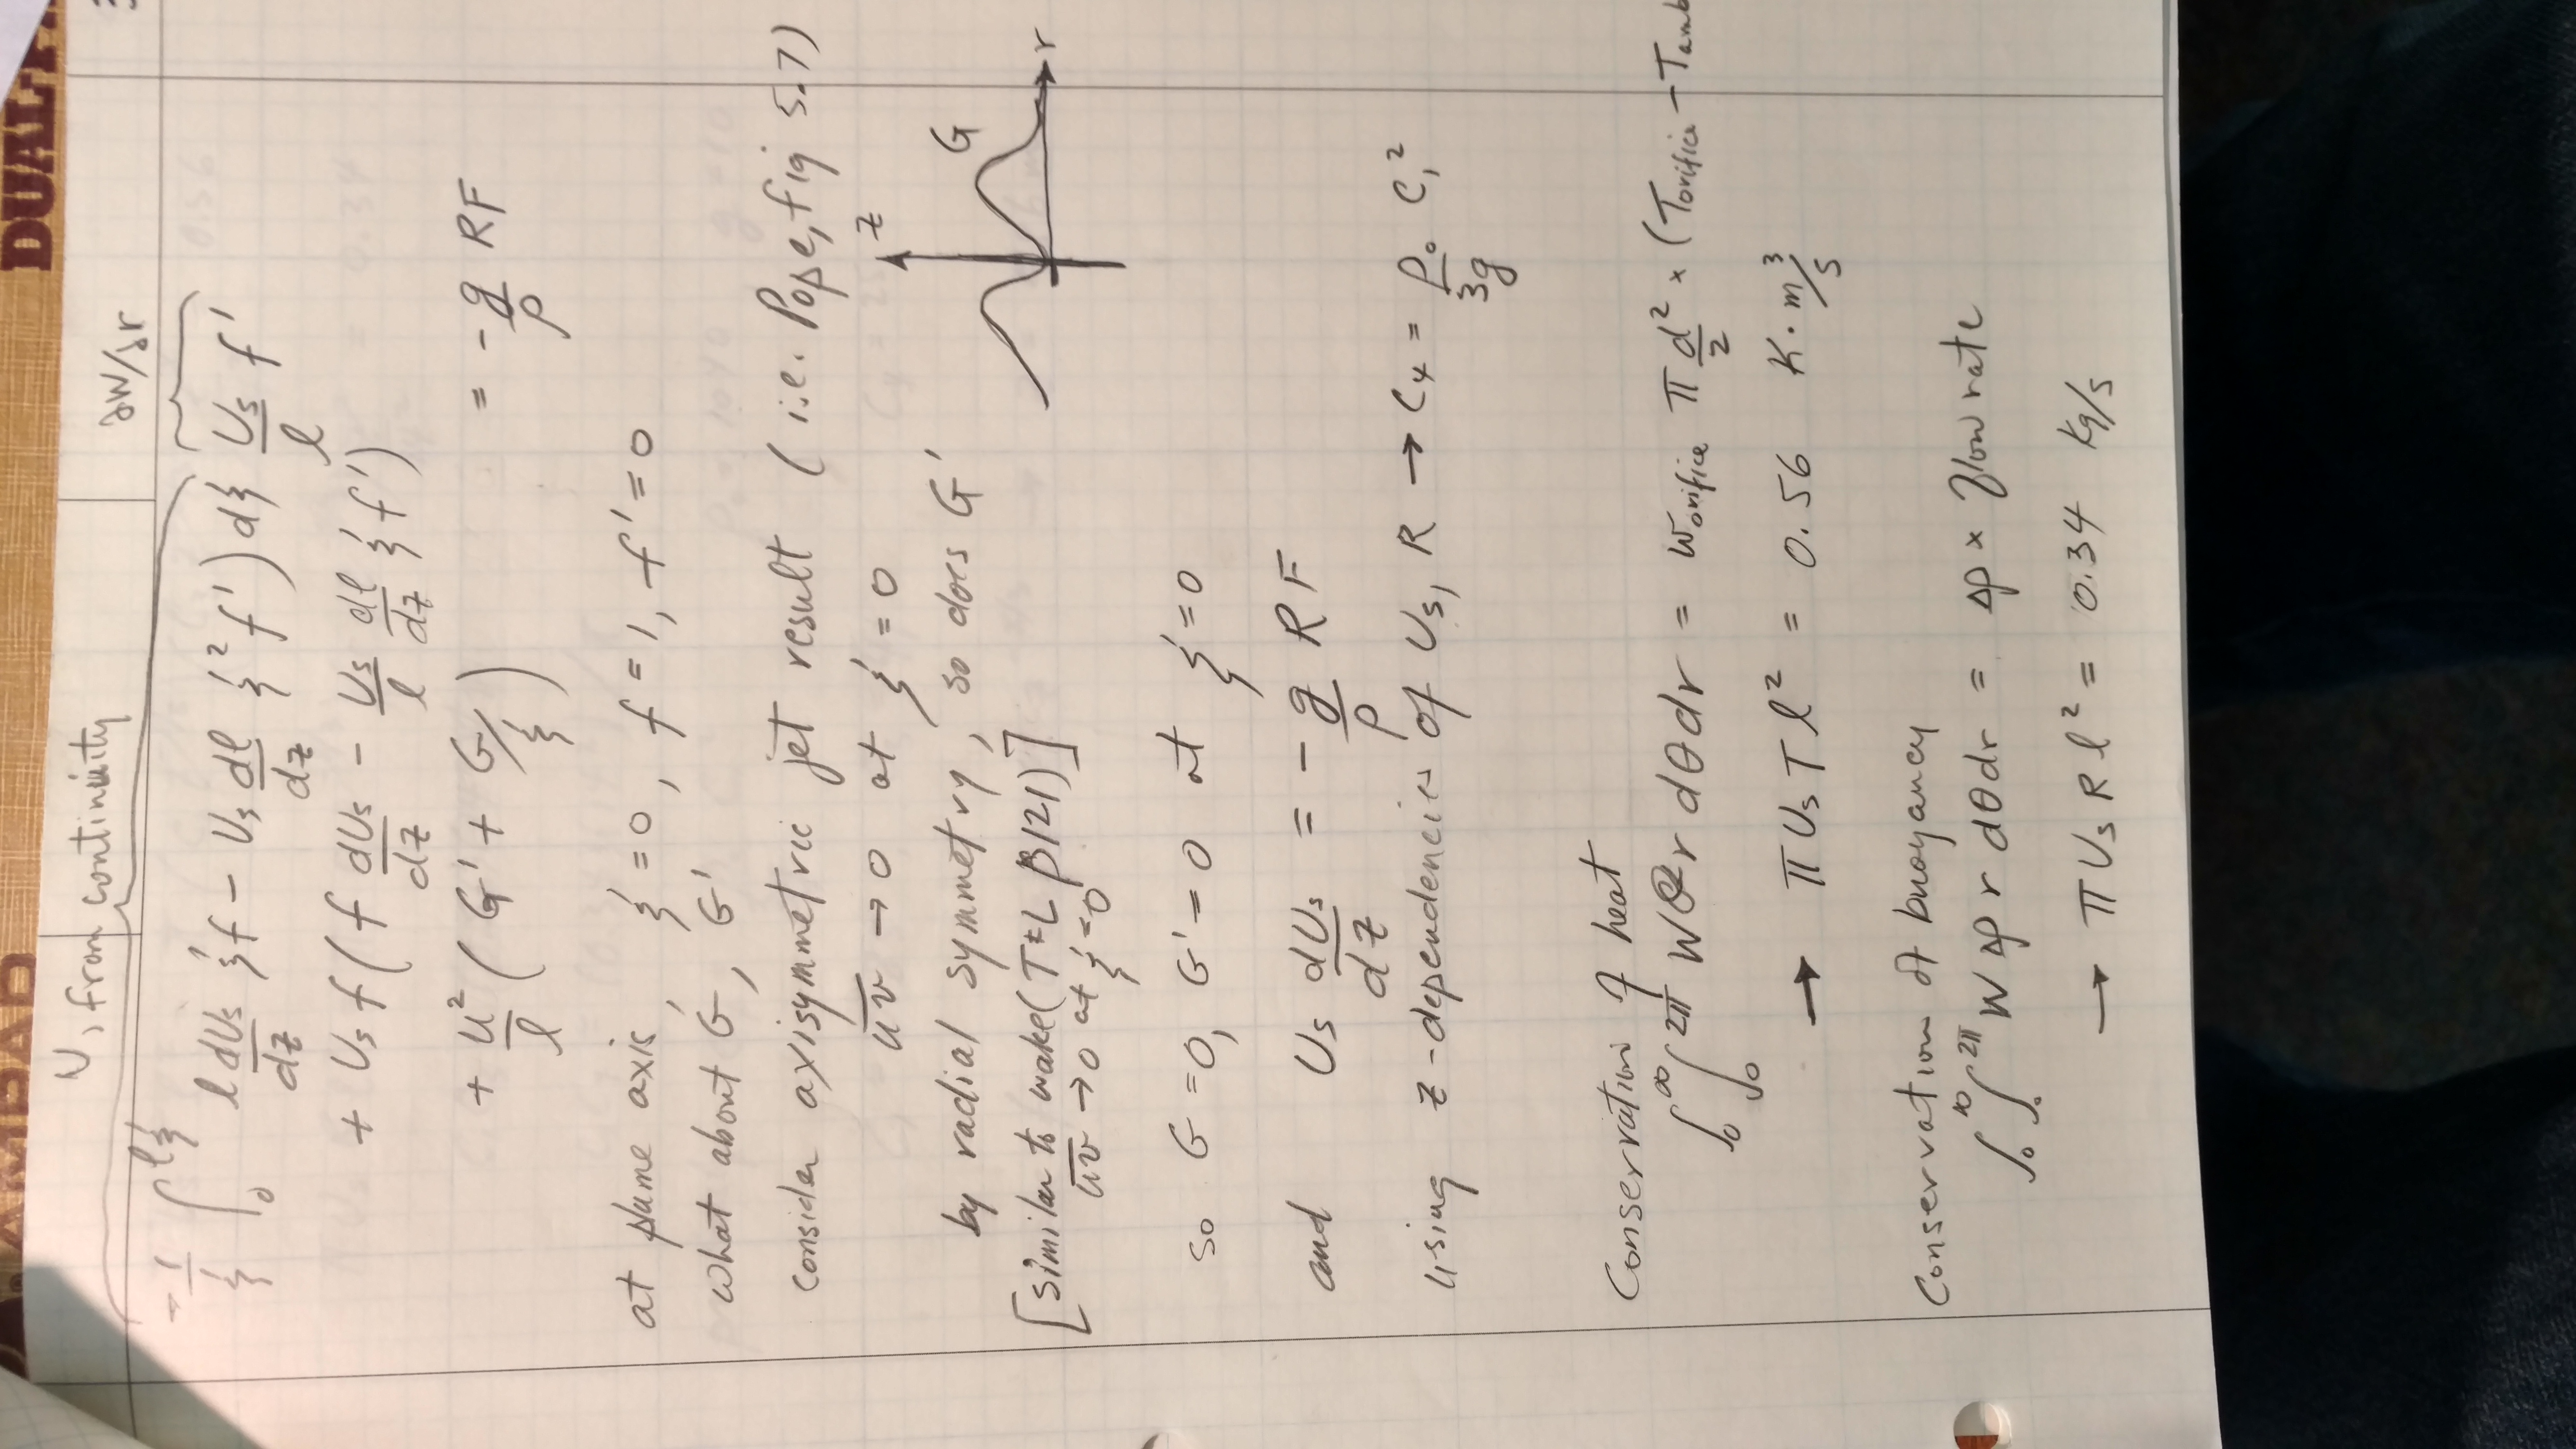 AMPAD
DUAL-P
U, from continuity
∂W/∂r
-1/ξ ∫₀^{lξ} l dUs/dz ξf - Us dl/dz ξ² f') dξ Us/l f'
+ Us f (f dUs/dz - Us/l dl/dz ξ f')
+ u²/l (G' + G/ξ) = -g/ρ RF
at plume axis, ξ = 0, f = 1, f' = 0
what about G, G'
consider axisymmetric jet result (i.e. Pope, fig 5.7)
u̅v̅ → 0 at ξ = 0
z
by radial symmetry, so does G'
G
[similar to wake (T&L p121)]
r
u̅v̅ → 0 at ξ = 0
so G = 0, G' = 0 at ξ = 0
and Us dUs/dz = -g/ρ RF
using z-dependencies of Us, R → C₄ = ρ₀/3g C₁²
Conservation of heat
∫₀^∞ ∫₀^{2π} W Θ r dθ dr = Worifice π d²/2 × (Torifice - Tamb
→ π Us T l² = 0.56 K·m³/s
Conservation of buoyancy
∫₀^∞ ∫₀^{2π} W Δρ r dθ dr = Δρ × flow rate
→ π Us R l² = 0.34 Kg/s